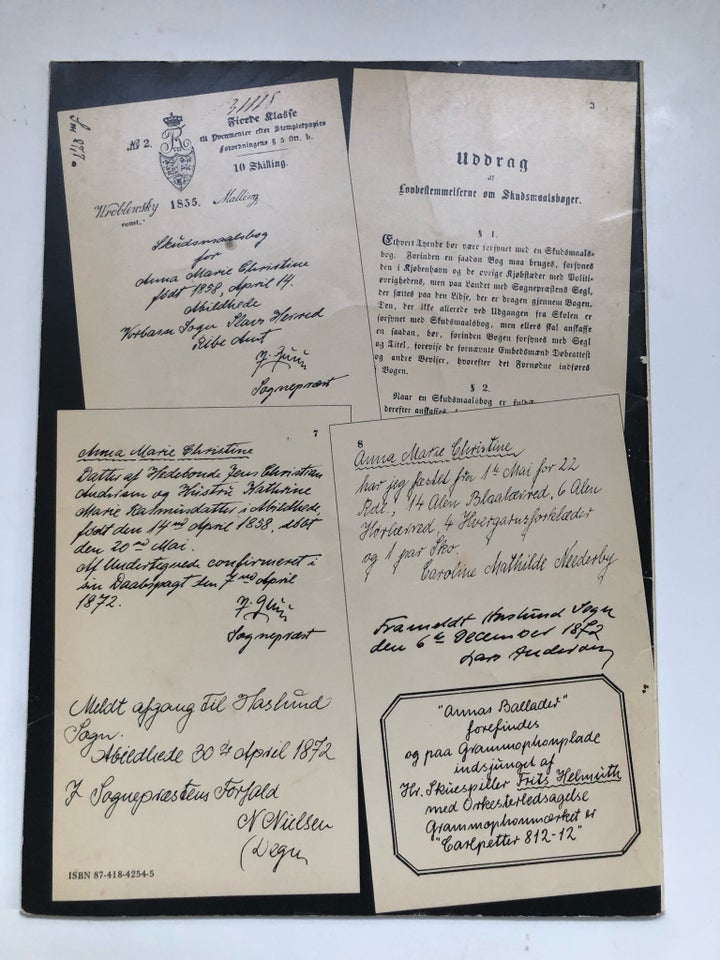 31118
Fierde Klasse
No 2.
til Documenter efter Stempletpapirs
Forordningens § 5 litr. b.
10 Skilling.
Wroblewsky 1855. Malling
const.
Skudsmaalsbog
for
Anna Marie Christine
født 1858, April 14.
Abildhede
Vorbasse Sogn Slavs Herred
Ribe Amt
Sognepræst
3
Uddrag
af
Lovbestemmelserne om Skudsmaalsbøger.
§ 1.
Ethvert Tyende bør være forsynet med en Skudsmaals-
bog. Forinden en saadan Bog maa bruges, forsynes
den i Kjøbenhavn og de øvrige Kjøbstæder med Politi-
øvrighedens, men paa Landet med Sognepræstens Segl,
der sættes paa den Lidse, der er dragen gjennem Bogen.
Den, der ikke allerede ved Udgangen fra Skolen er
forsynet med Skudsmaalsbog, men ellers skal anskaffe
en saadan, bør, forinden Bogen forsynes med Segl
og Titel, forevise de fornævnte Embedsmænd Døbeattest
og andre Beviser, hvorefter det Fornødne indføres
i Bogen.
§ 2.
Naar en Skudsmaalsbog er
derefter anskaffes
7
Anna Marie Christine
Datter af Hedebonde Jens Christian
Andersen og Hustru Kathrine
Marie Rasmusdatter i Abildhede,
født den 14nd April 1858, døbt
den 20nd Mai.
Af Undertegnede confirmeret i
sin Daabspagt den 7nd April
1872.
Sognepræst
Meldt afgang til Haslund
Sogn.
Abildhede 30te April 1872
I Sognepræstens Forfald
N Nielsen
(Degn
ISBN 87-418-4254-5
8
Anna Marie Christine
har jeg fæstet fra 1te Mai for 22
Rdl., 14 Alen Blaalærred, 6 Alen
Hørlærred, 4 Hvergarnsforklæder
og 1 par Sko.
Caroline Mathilde Neederby
Frameldt Haslund Sogn
den 6te December 1872
Lars Andersen
"Annas Ballader"
forefindes
og paa Grammophonplade
indsjunget af
Hr. Skuespiller Frits Helmuth
med Orkesterledsagelse
Grammophonmærket er
"Carlpetter 812-12"